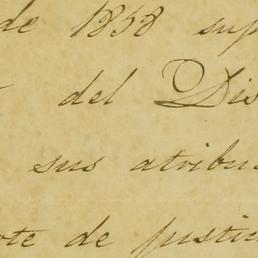 de 1858 sup
del Dis
sus atribu
te de justic